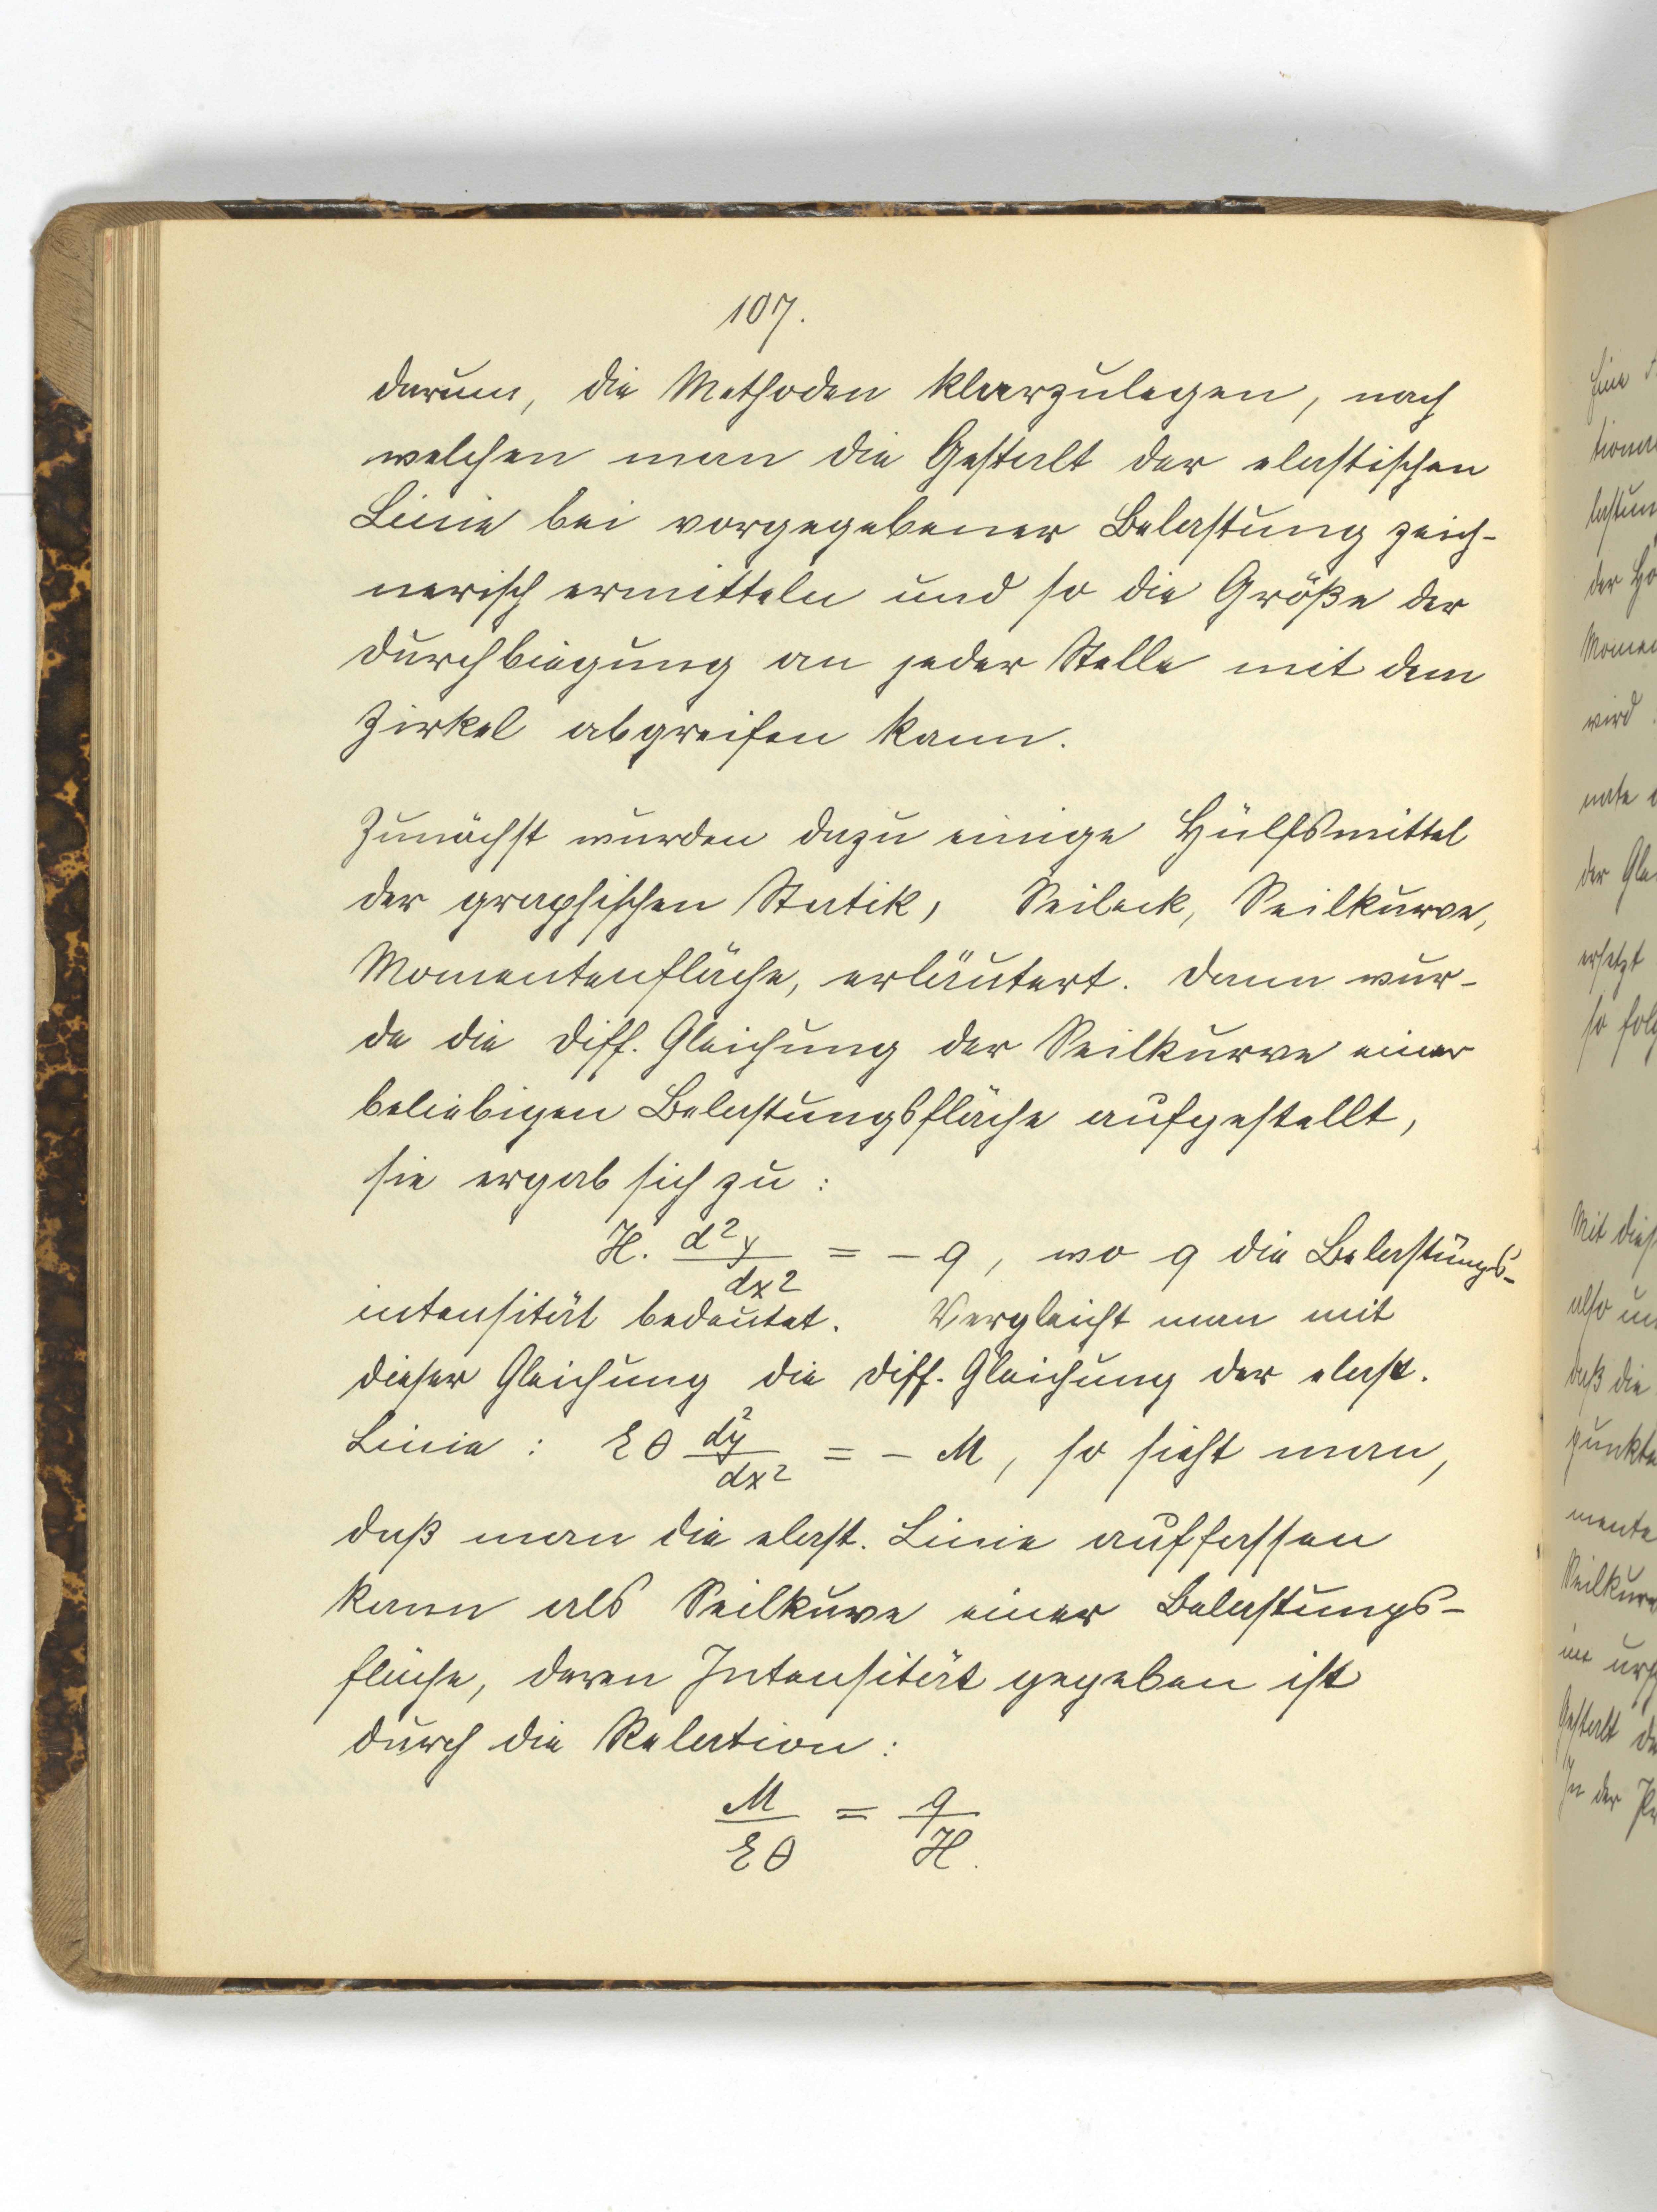 107.
darum, die Methoden klarzulegen, nach
welchen man die Gestalt der elastischen
Linie bei vorgegebener Belastung zeich-
nerisch ermitteln und so die Größe der
Durchbiegung an jeder Stelle mit dem
Zirkel abgreifen kann.
Zunächst wurden dazu einige Hülfsmittel
der graphischen Statik, Seileck, Seilkurve,
Momentenfläche, erläutert. Dann wur-
de die Diff. Gleichung der Seilkurve einer
beliebigen Belastungsfläche aufgestellt,
sie ergab sich zu:
H. d²y/dx² = - q, wo q die Belastungs-
intensität bedeutet. Vergleicht man mit
dieser Gleichung die Diff. Gleichung der elast.
Linie: E θ d²y/dx² = - M, so sieht man,
daß man die elast. Linie auffassen
kann als Seilkurve einer Belastungs-
fläche, deren Intensität gegeben ist
durch die Relation:
M/Eθ = q/H.
Eine
der
wird
ersetzt
so
Mit
also
daß die
Gestalt
In der